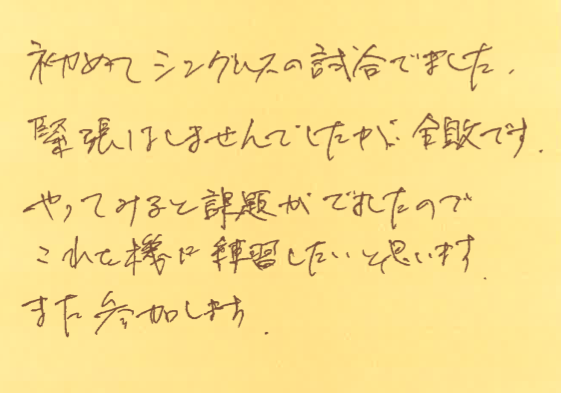 初めてシングルスの試合でました.
緊張はしませんでしたが 全敗です.
やってみると課題がでましたので
これを機に練習したいと思います.
また参加します.